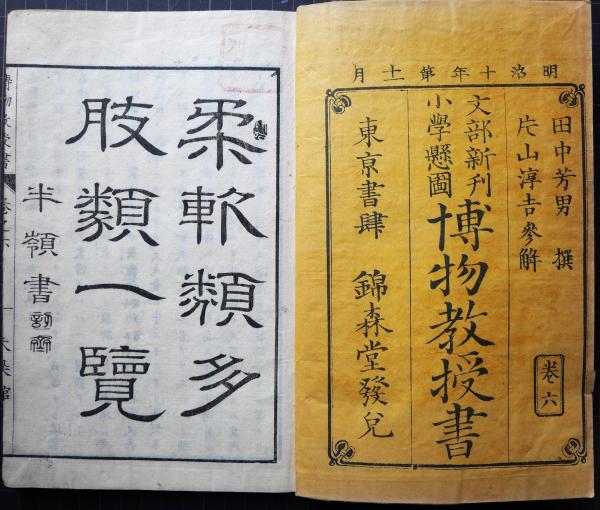 明治十年第十一月
田中芳男 撰
片山淳吉參解
文部新刊
小學懸圖
博物教授書
卷六
東京書肆 錦森堂發兌
柔軟類多
肢類一覽
半嶺書